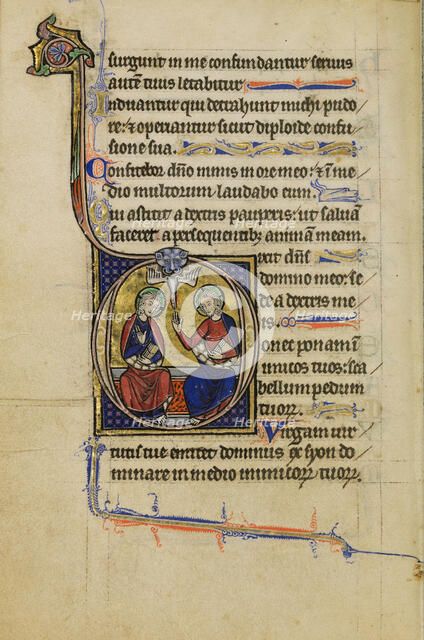 surgunt in me confundantur seruus
autē tuus letabitur
Induantur qui detrahunt michi pudo
re: ⁊ operiantur sicut diploide confu
sione sua.
Confitebor dño nimis in ore meo: ⁊ ī me
dio multorum laudabo eum.
Qui astitit a dextris pauperis: ut saluā
faceret a persequentibꝫ animam meam.
Dixit dñs
domino meo: se
de a dextris me
is.
Donec ponam in
imicos tuos: sca
bellum pedum
tuoꝝ.
Virgam uir
tutis tue emittet dominus ex syon do
minare in medio inimicoꝝ tuoꝝ.
Heritage
Heritage
Heritage
Heritage
Heritage
Heritage